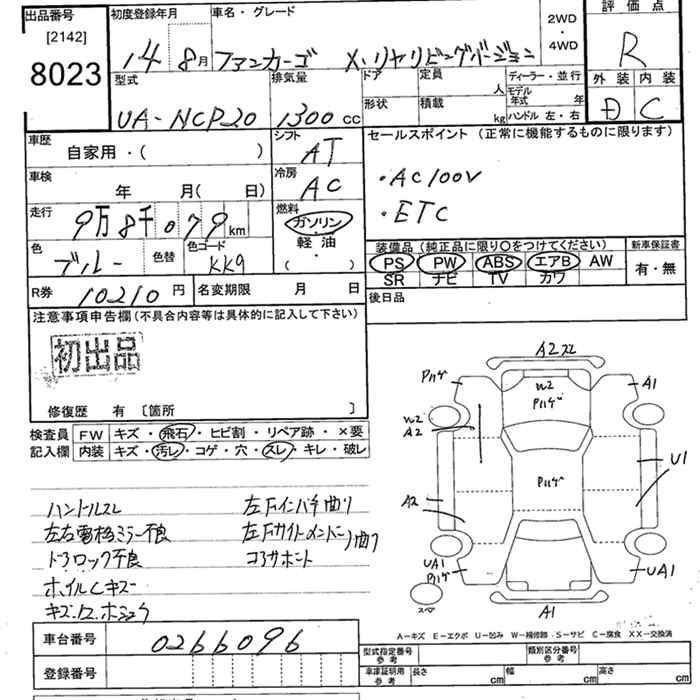 出品番号
[2142]
8023
初度登録年月
14 8月
車名・グレード
ファンカーゴ X リヤリビングバージョン
2WD
・
4WD
評価点
R
外装 内装
D C
型式
UA-NCP20
排気量
1300 cc
ドア
定員
人
形状
積載
kg
ディーラー・並行
モデル
年式 年
ハンドル 左・右
車歴
自家用・( )
シフト
AT
車検
年 月( 日)
冷房
AC
走行
9万8千079 km
燃料
ガソリン
・
軽油
( ・ )
色
ブルー
色替
色コード
KK9
R券 10210 円
名変期限 月 日
セールスポイント (正常に機能するものに限ります)
・AC100V
・ETC
装備品 (純正品に限り○をつけてください)
PS PW ABS エアB AW
SR ナビ TV カワ
新車保証書
有・無
後日品
注意事項申告欄(不具合内容等は具体的に記入して下さい)
初出品
修復歴 有 〔箇所 〕
検査員
記入欄
FW キズ・飛石・ヒビ割・リペア跡・×要
内装 キズ・汚レ・コゲ・穴・スレ・キレ・破レ
ハンドルスレ
左右電格ミラー不良
ドアロック不良
ホイルCキズ
左Fインパネ曲り
左Fサイドメンバー曲り
コアサポート
A2
P
W2
A1
W2
A2
P
U1
A2
UA1
P
UA1
スペ
A1
A-キズ E-エクボ U-凹み W-補修跡 S-サビ C-腐食 XX-交換済
車台番号 0266096
登録番号
型式指定番号
参考
類別区分番号
参考
車庫証明用
参考
長さ cm
幅 cm
高さ cm